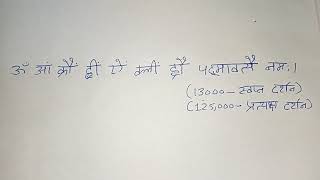 ॐ आं क्रौं ह्रीं ऐं क्लीं ह्रौं पद्मावत्यै नमः।
(13000 – स्वप्न दर्शन)
(125,000 – प्रत्यक्ष दर्शन)